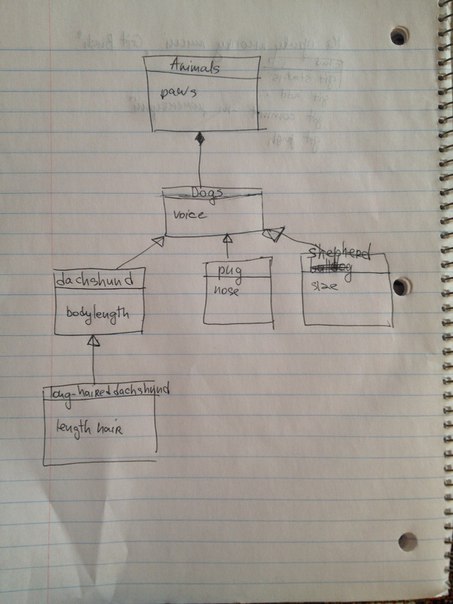 Animals
paws
Dogs
voice
dachshund
bodylength
pug
nose
Shepherd
size
long-haired dachshund
length hair